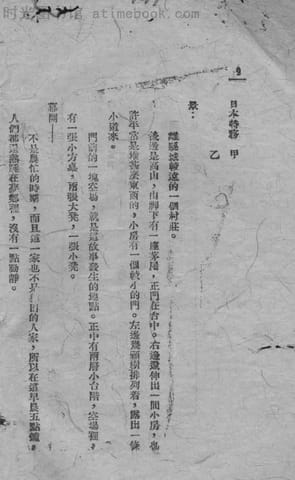 时光 atimebook.com
9
日本特務 甲
乙
景：
離縣城較遠的一個村莊。
後邊是高山，山脚下有一座茅屋，正門在台中。右邊還伸出一間小房，也
許平常是堆柴東西的，小房有一個較小的門。左邊幾顆樹排列着，露出一條
小道來。
門前的一塊空場，就是這故事發生的地點。正中有兩層小台階，空場裡
有一張小方桌，兩張大凳，一張小凳。
幕開——
不是農忙的時期，而且這一家也不是 田的人家，所以在這早晨五點鐘，
人們都還熟睡在夢鄉裡，沒有一點動靜。